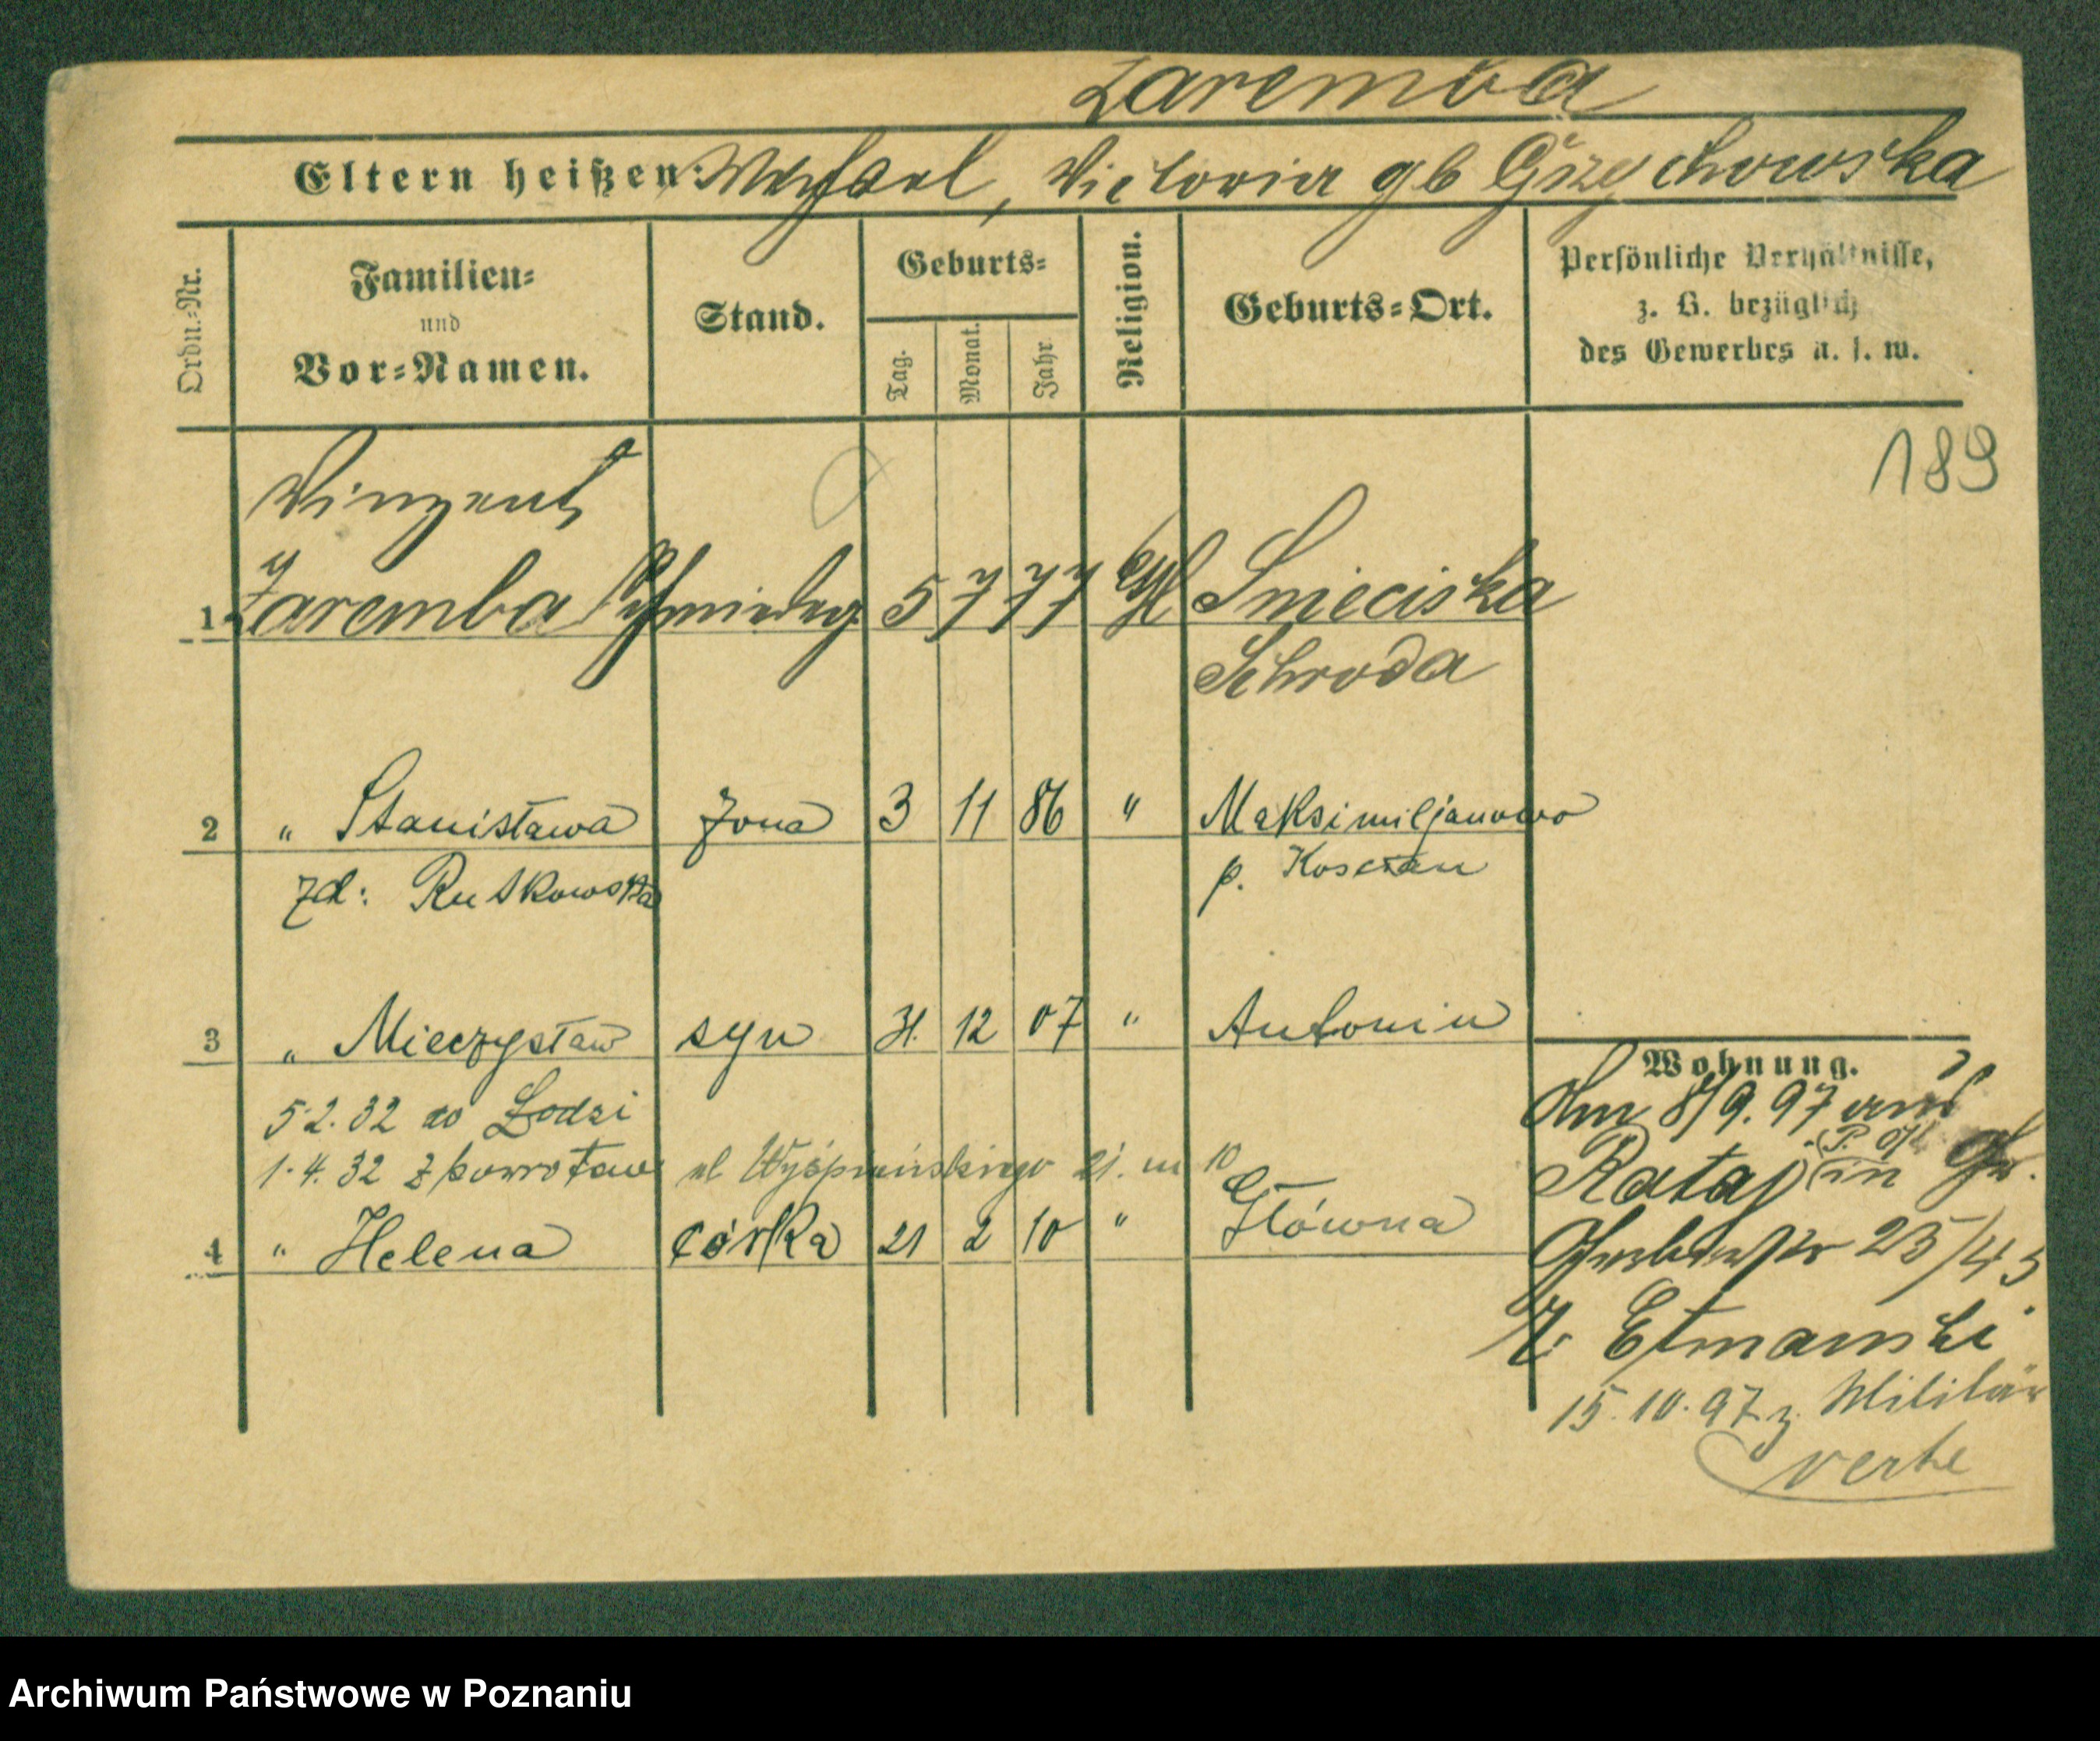 Zaremba
Eltern heißen: Michael, Victoria gb Grzechowska
Ordn.-Nr.
Familien-
und
Vor-Namen.
Stand.
Geburts-
Tag.
Monat.
Jahr.
Religion.
Geburts-Ort.
Persönliche Verhältnisse,
z. B. bezüglich
des Gewerbes u. s. w.
189
Vinzent
1 Zaremba Schmiedeg 5 7 77 Snieciska
Schroda
2 " Stanisława żona 3 11 86 " Maksimiljanowo
zd: Rutkowska p. Koscian
3 " Mieczysław syn 31. 12 07 " Antonin
5.2.32 do Łodzi
1.4.32 z powrotem ul Wyśpiańskiego 21. m 10
4 " Helena córka 21 2 10 " Główna
Wohnung.
8/9.97 aus
Rataj in
23/43
Etmanski
15.10.97 z. Militär
verte
Archiwum Państwowe w Poznaniu